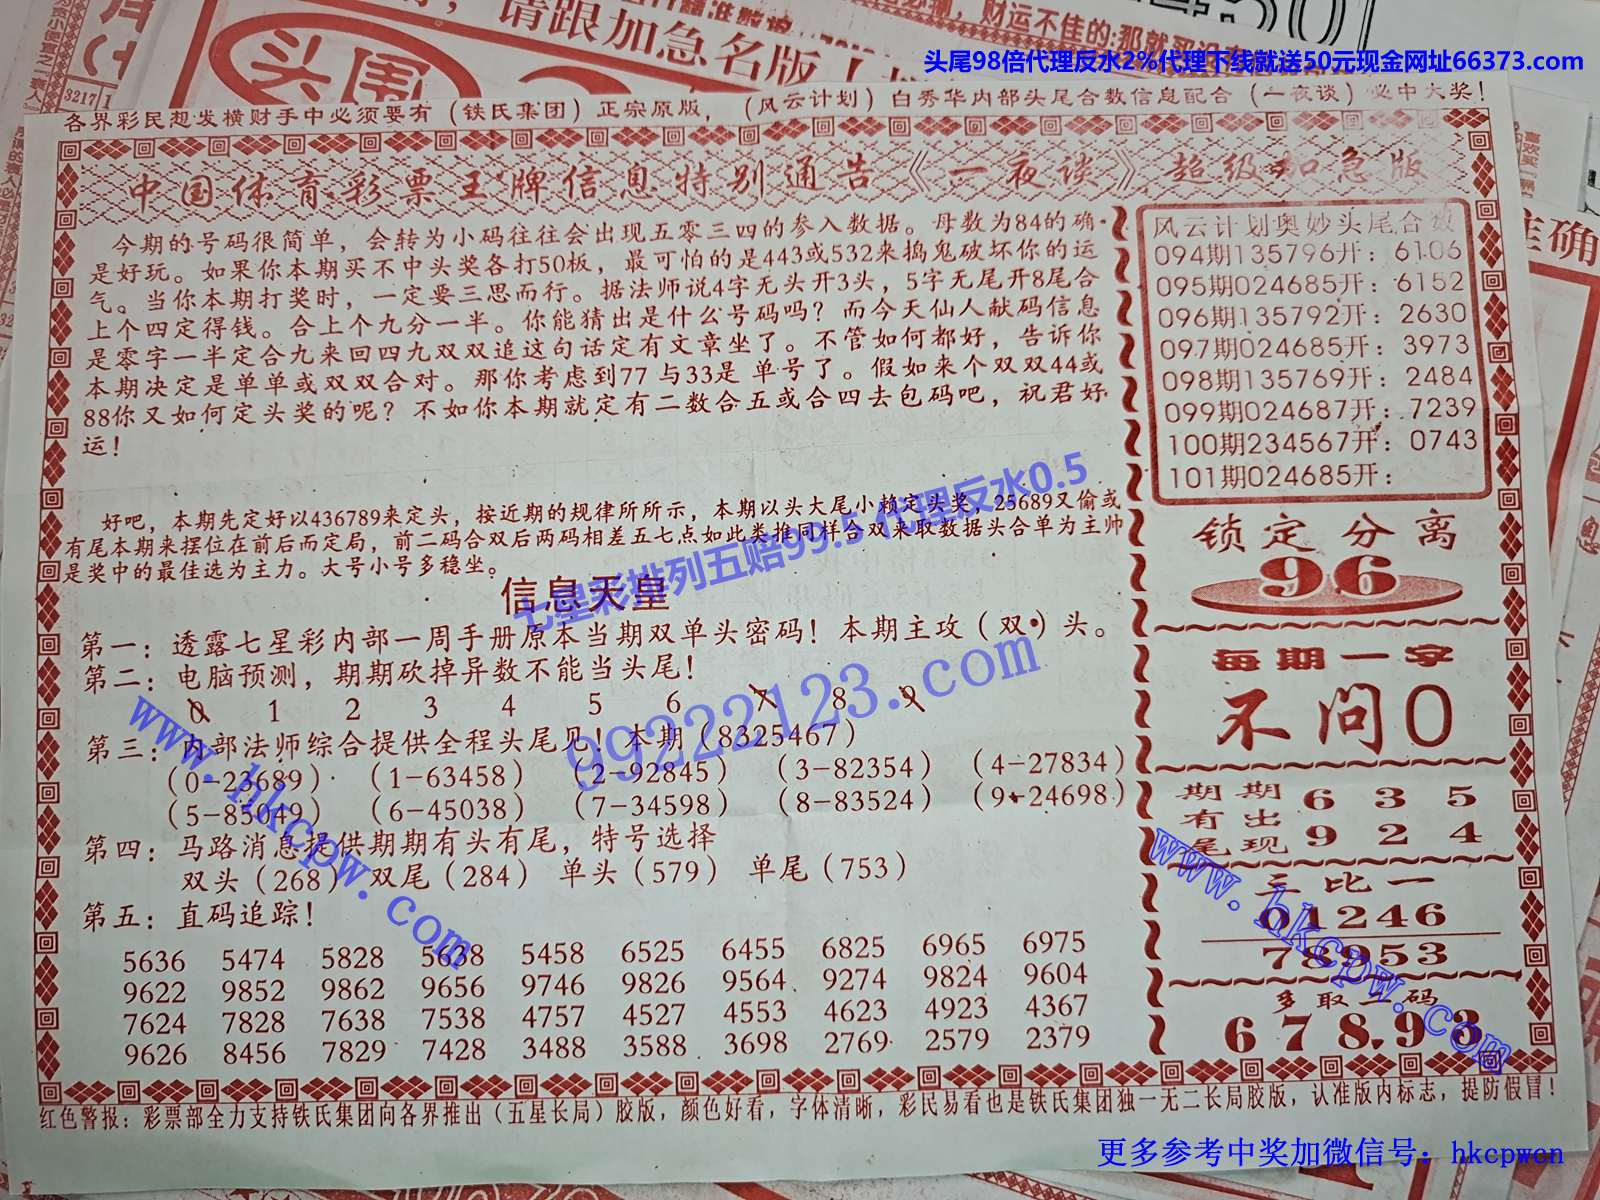 请跟加急名版
头尾98倍代理反水2%代理下线就送50元现金网址66373.com
各界彩民想发横财手中必须要有（铁氏集团）正宗原版，（风云计划）白秀华内部头尾合数信息配合（一夜谈）必中大奖！
中国体育彩票王牌信息特别通告《一夜谈》超级加急版
今期的号码很简单，会转为小码往往会出现五零三四的参入数据。母数为84的确
是好玩。如果你本期买不中头奖各打50板，最可怕的是443或532来捣鬼破坏你的运
气。当你本期打奖时，一定要三思而行。据法师说4字无头开3头，5字无尾开8尾合
上个四定得钱。合上个九分一半。你能猜出是什么号码吗？而今天仙人献码信息
是零字一半定合九来回四九双双追这句话定有文章坐了。不管如何都好，告诉你
本期决定是单单或双双合对。那你考虑到77与33是 单号了。假如来个双双44或
88你又如何定头奖的呢？不如你本期就定有二数合五或合四去包码吧，祝君好
运！
好吧，本期先定好以436789来定头，按近期的规律所所示，本期以头大尾小赖定头奖，25689又偷或
有尾本期来摆位在前后而定局，前二码合双后两码相差五七点如此类推同样合双来取数据头合单为主帅
是奖中的最佳选为主力。大号小号多稳坐。
七星彩排列五赔99.5 代理反水0.5
信息天皇
第一：透露七星彩内部一周手册原本当期双单头密码！本期主攻（双）头。
第二：电脑预测，期期砍掉异数不能当头尾！
0 1 2 3 4 5 6 7 8 9
第三：内部法师综合提供全程头尾见！本期（8325467）
（0-23689）（1-63458）（2-92845）（3-82354）（4-27834）
（5-85049）（6-45038）（7-34598）（8-83524）（9-24698）
第四：马路消息提供期期有头有尾，特号选择
双头（268） 双尾（284） 单头（579） 单尾（753）
第五：直码追踪！
5636 5474 5828 5638 5458 6525 6455 6825 6965 6975
9622 9852 9862 9656 9746 9826 9564 9274 9824 9604
7624 7828 7638 7538 4757 4527 4553 4623 4923 4367
9626 8456 7829 7428 3488 3588 3698 2769 2579 2379
www.hkcpw.com
99222123.com
风云计划奥妙头尾合数
094期135796开：6106
095期024685开：6152
096期135792开：2630
097期024685开：3973
098期135769开：2484
099期024687开：7239
100期234567开：0743
101期024685开：
锁定分离
96
每期一字
不问0
期期 6 3 5
有出
尾现 9 2 4
三比一
01246
78953
多取一码
67893
www.hkcpw.com
红色警报：彩票部全力支持铁氏集团向各界推出（五星长局）胶版，颜色好看，字体清晰，彩民易看也是铁氏集团独一无二长局胶版，认准版内标志，提防假冒！
更多参考中奖加微信号：hkcpwcn